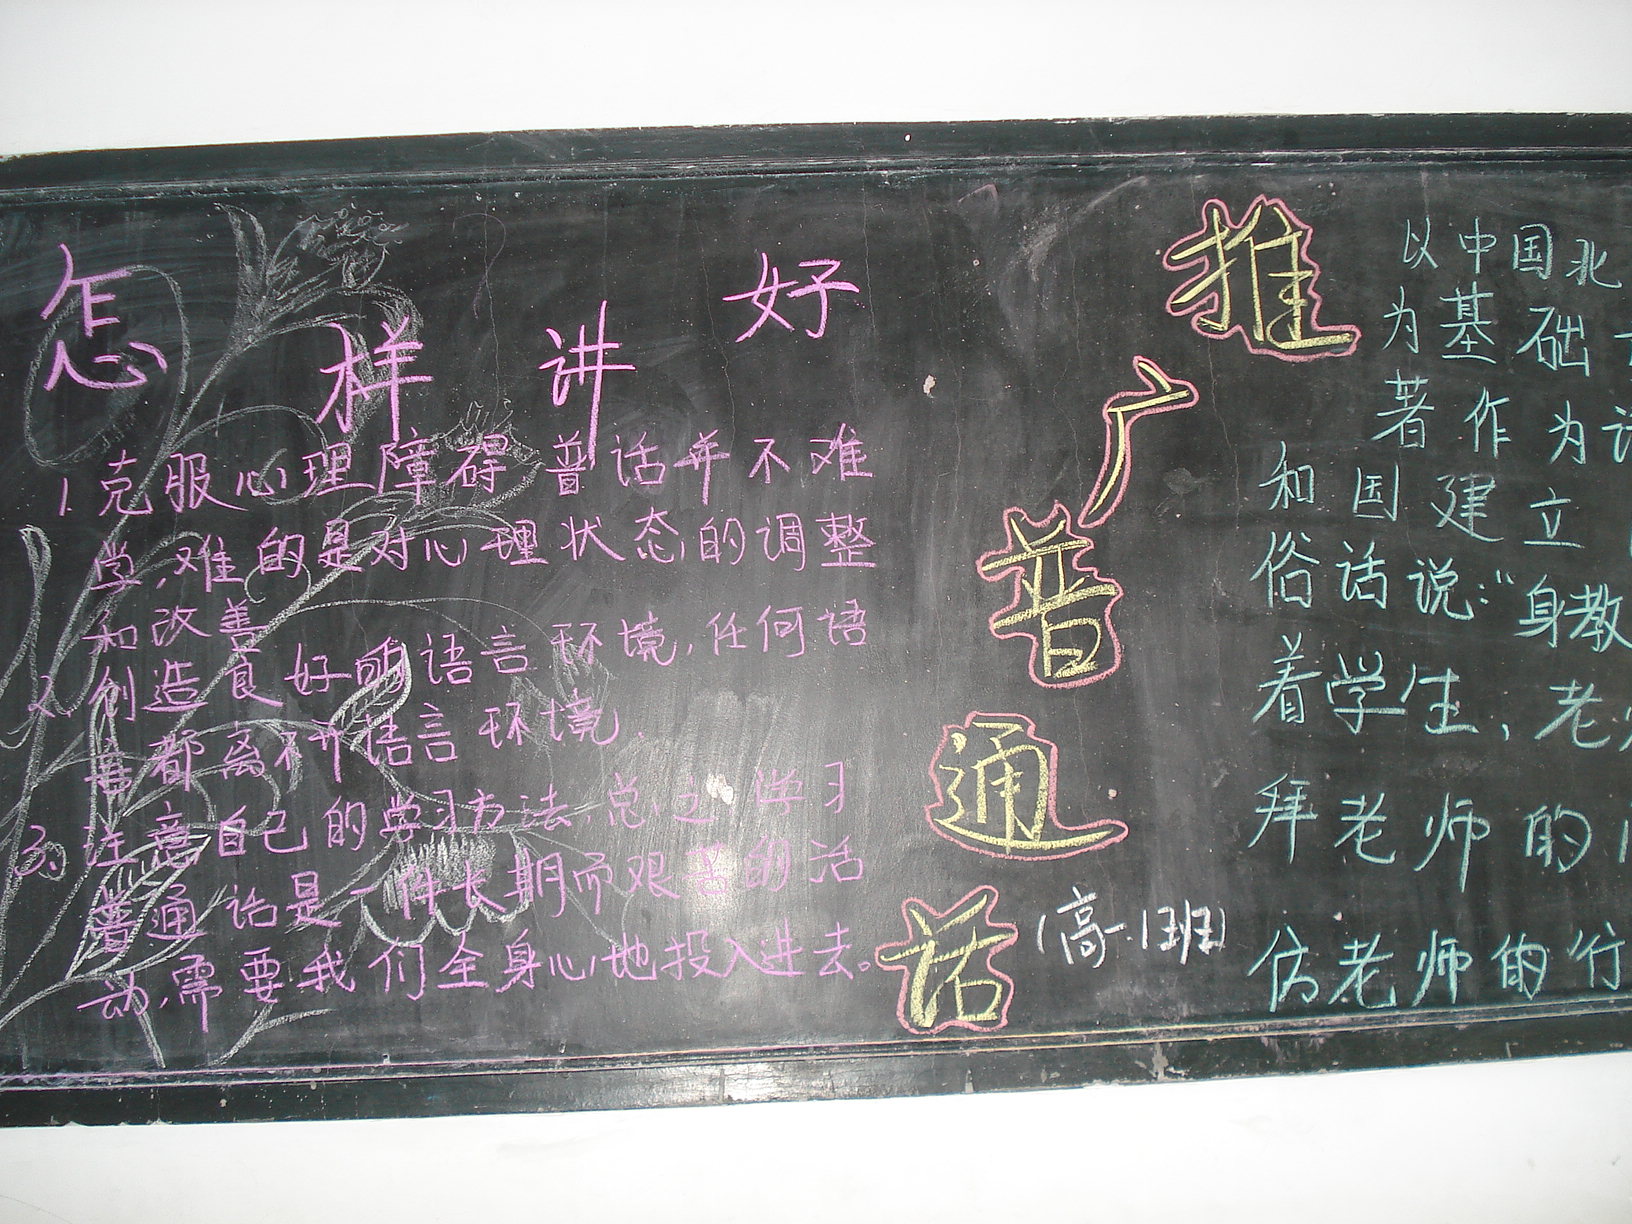 怎样讲好
1.克服心理障碍 普话并不难
学,难的是对心理状态的调整
和改善
2.创造良好的语言环境,任何语
言都离不开语言环境.
3.注意自己的学习方法,总之学习
普通话是一件长期而艰苦的活
动,需要我们全身心地投入进去。
推广普通话
(高一.1班)
以中国北
为基础
著作为
和国建立
俗话说:“身教
着学生,老
拜老师的
仿老师的行